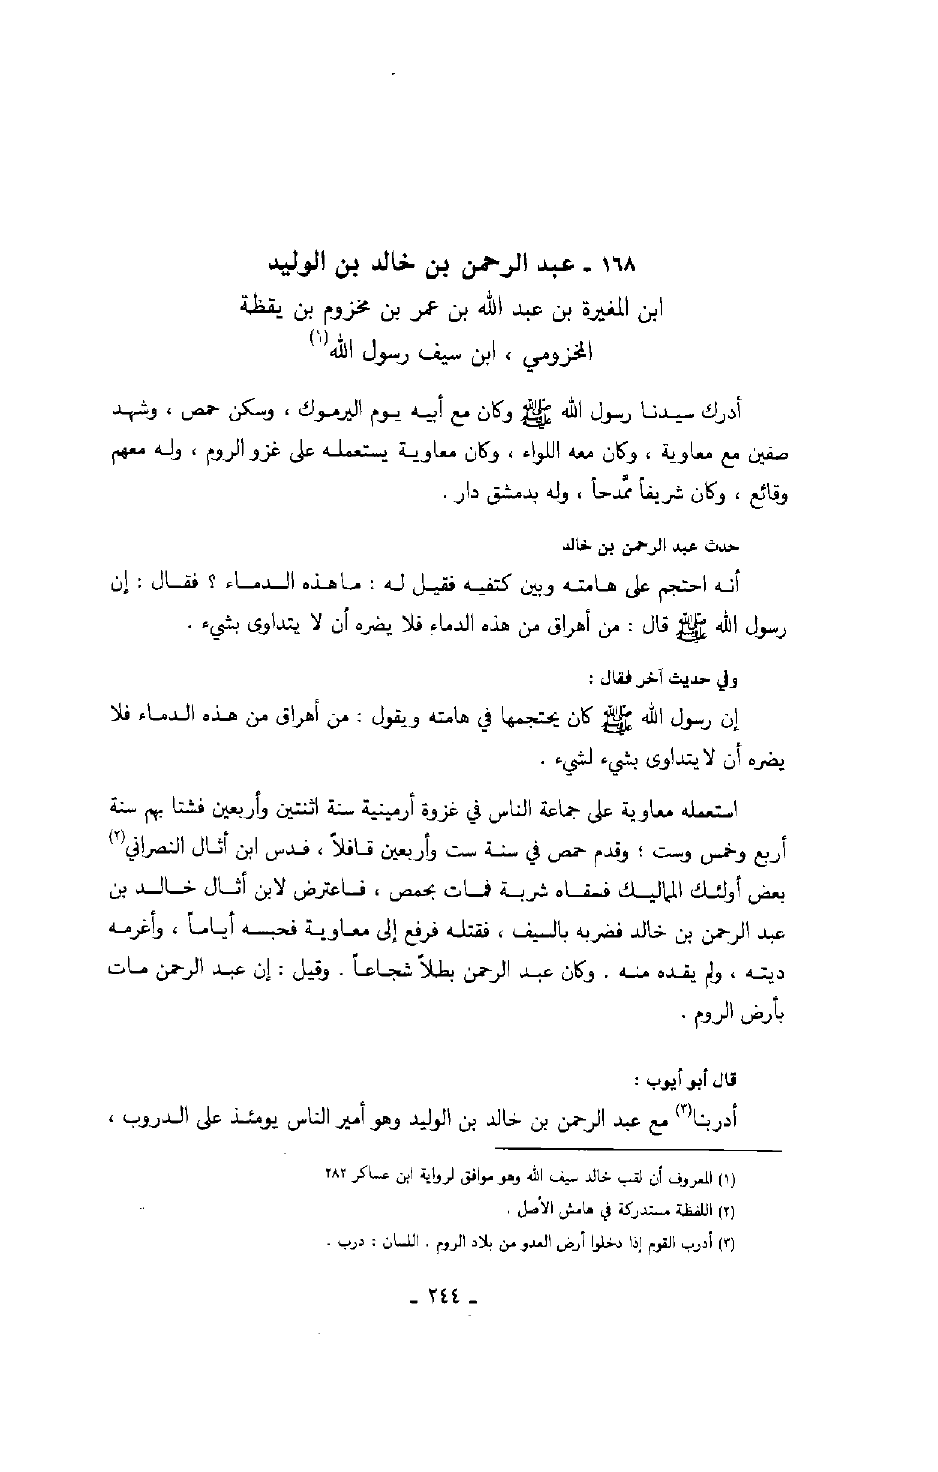 ١٦٨ ـ عبد الرحمن بن خالد بن الوليد
ابن المغيرة بن عبد الله بن عمر بن مخزوم بن يقظة
المخزومي ، ابن سيف رسول الله(١)
أدرك سيدنا رسول الله ﷺ وكان مع أبيه يوم اليرموك ، وسكن حمص ، وشهد
صفين مع معاوية ، وكان معه اللواء ، وكان معاوية يستعمله على غزو الروم ، وله معهم
وقائع ، وكان شريفاً ممَّدحاً ، وله بدمشق دار .
حدث عبد الرحمن بن خالد
أنه احتجم على هامته وبين كتفيه فقيل له : ماهذه الدماء ؟ فقال : إن
رسول الله ﷺ قال : من أهراق من هذه الدماء فلا يضره أن لا يتداوى بشيء .
وفي حديث آخر فقال :
إن رسول الله ﷺ كان يحتجمها في هامته ويقول : من أهراق من هذه الدماء فلا
يضره أن لا يتداوى بشيء لشيء .
استعمله معاوية على جماعة الناس في غزوة أرمينية سنة اثنتين وأربعين فشتا بهم سنة
أربع وخمس وست ؛ وقدم حمص في سنة ست وأربعين قافلاً ، فدس ابن أثال النصراني(٢)
بعض أولئك المماليك فسقاه شربة فمات بحمص ، فاعترض لابن أثال خالد بن
عبد الرحمن بن خالد فضربه بالسيف ، فقتله فرفع إلى معاوية فحبسه أياماً ، وأغرمه
ديته ، ولم يقده منه . وكان عبد الرحمن بطلاً شجاعاً . وقيل : إن عبد الرحمن مات
بأرض الروم .
قال أبو أيوب :
أدربنا(٣) مع عبد الرحمن بن خالد بن الوليد وهو أمير الناس يومئذ على الدروب ،
(١) المعروف أن لقب خالد سيف الله وهو موافق لرواية ابن عساكر ٢٨٢
(٢) اللفظة مستدركة في هامش الأصل .
(٣) أدرب القوم إذا دخلوا أرض العدو من بلاد الروم . اللسان : درب .
ـ ٢٤٤ ـ